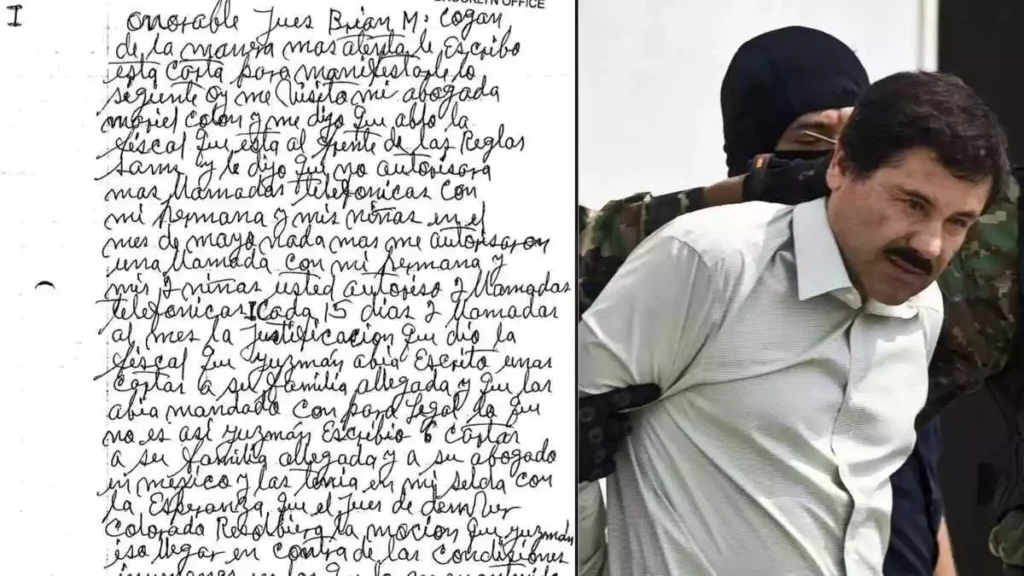 BROOKLYN OFFICE
I
onorable Jues Brian M. Cogan
de la manera mas atenta le Escribo
esta Carta para manifestarle lo
sigiente oy me Visito mi abogada
mariel colon y me dijo que ablo la
fiscal que esta al frente de las Reglas
Sami y le dijo que no autorisara
mas llamadas telefonicas con
mi hermana y mis niñas en el
mes de mayo nada mas me autorisaron
una llamada con mi hermana y
mis 2 niñas usted autoriso 2 llamadas
telefonicas Cada 15 dias 2 llamadas
al mes la Justificacion que dio la
fiscal que guzmán abia Escrito unas
Cartas a su familia allegada y que las
abia mandado con legal lo que
no es asi guzmán Escribio 6 cartas
a su familia allegada y a su abogado
en mexico y las tenia en mi selda con
la Esperanza que el Jues de denver
Colorado la mocion que guzmán
iso llegar en contra de las condisiones